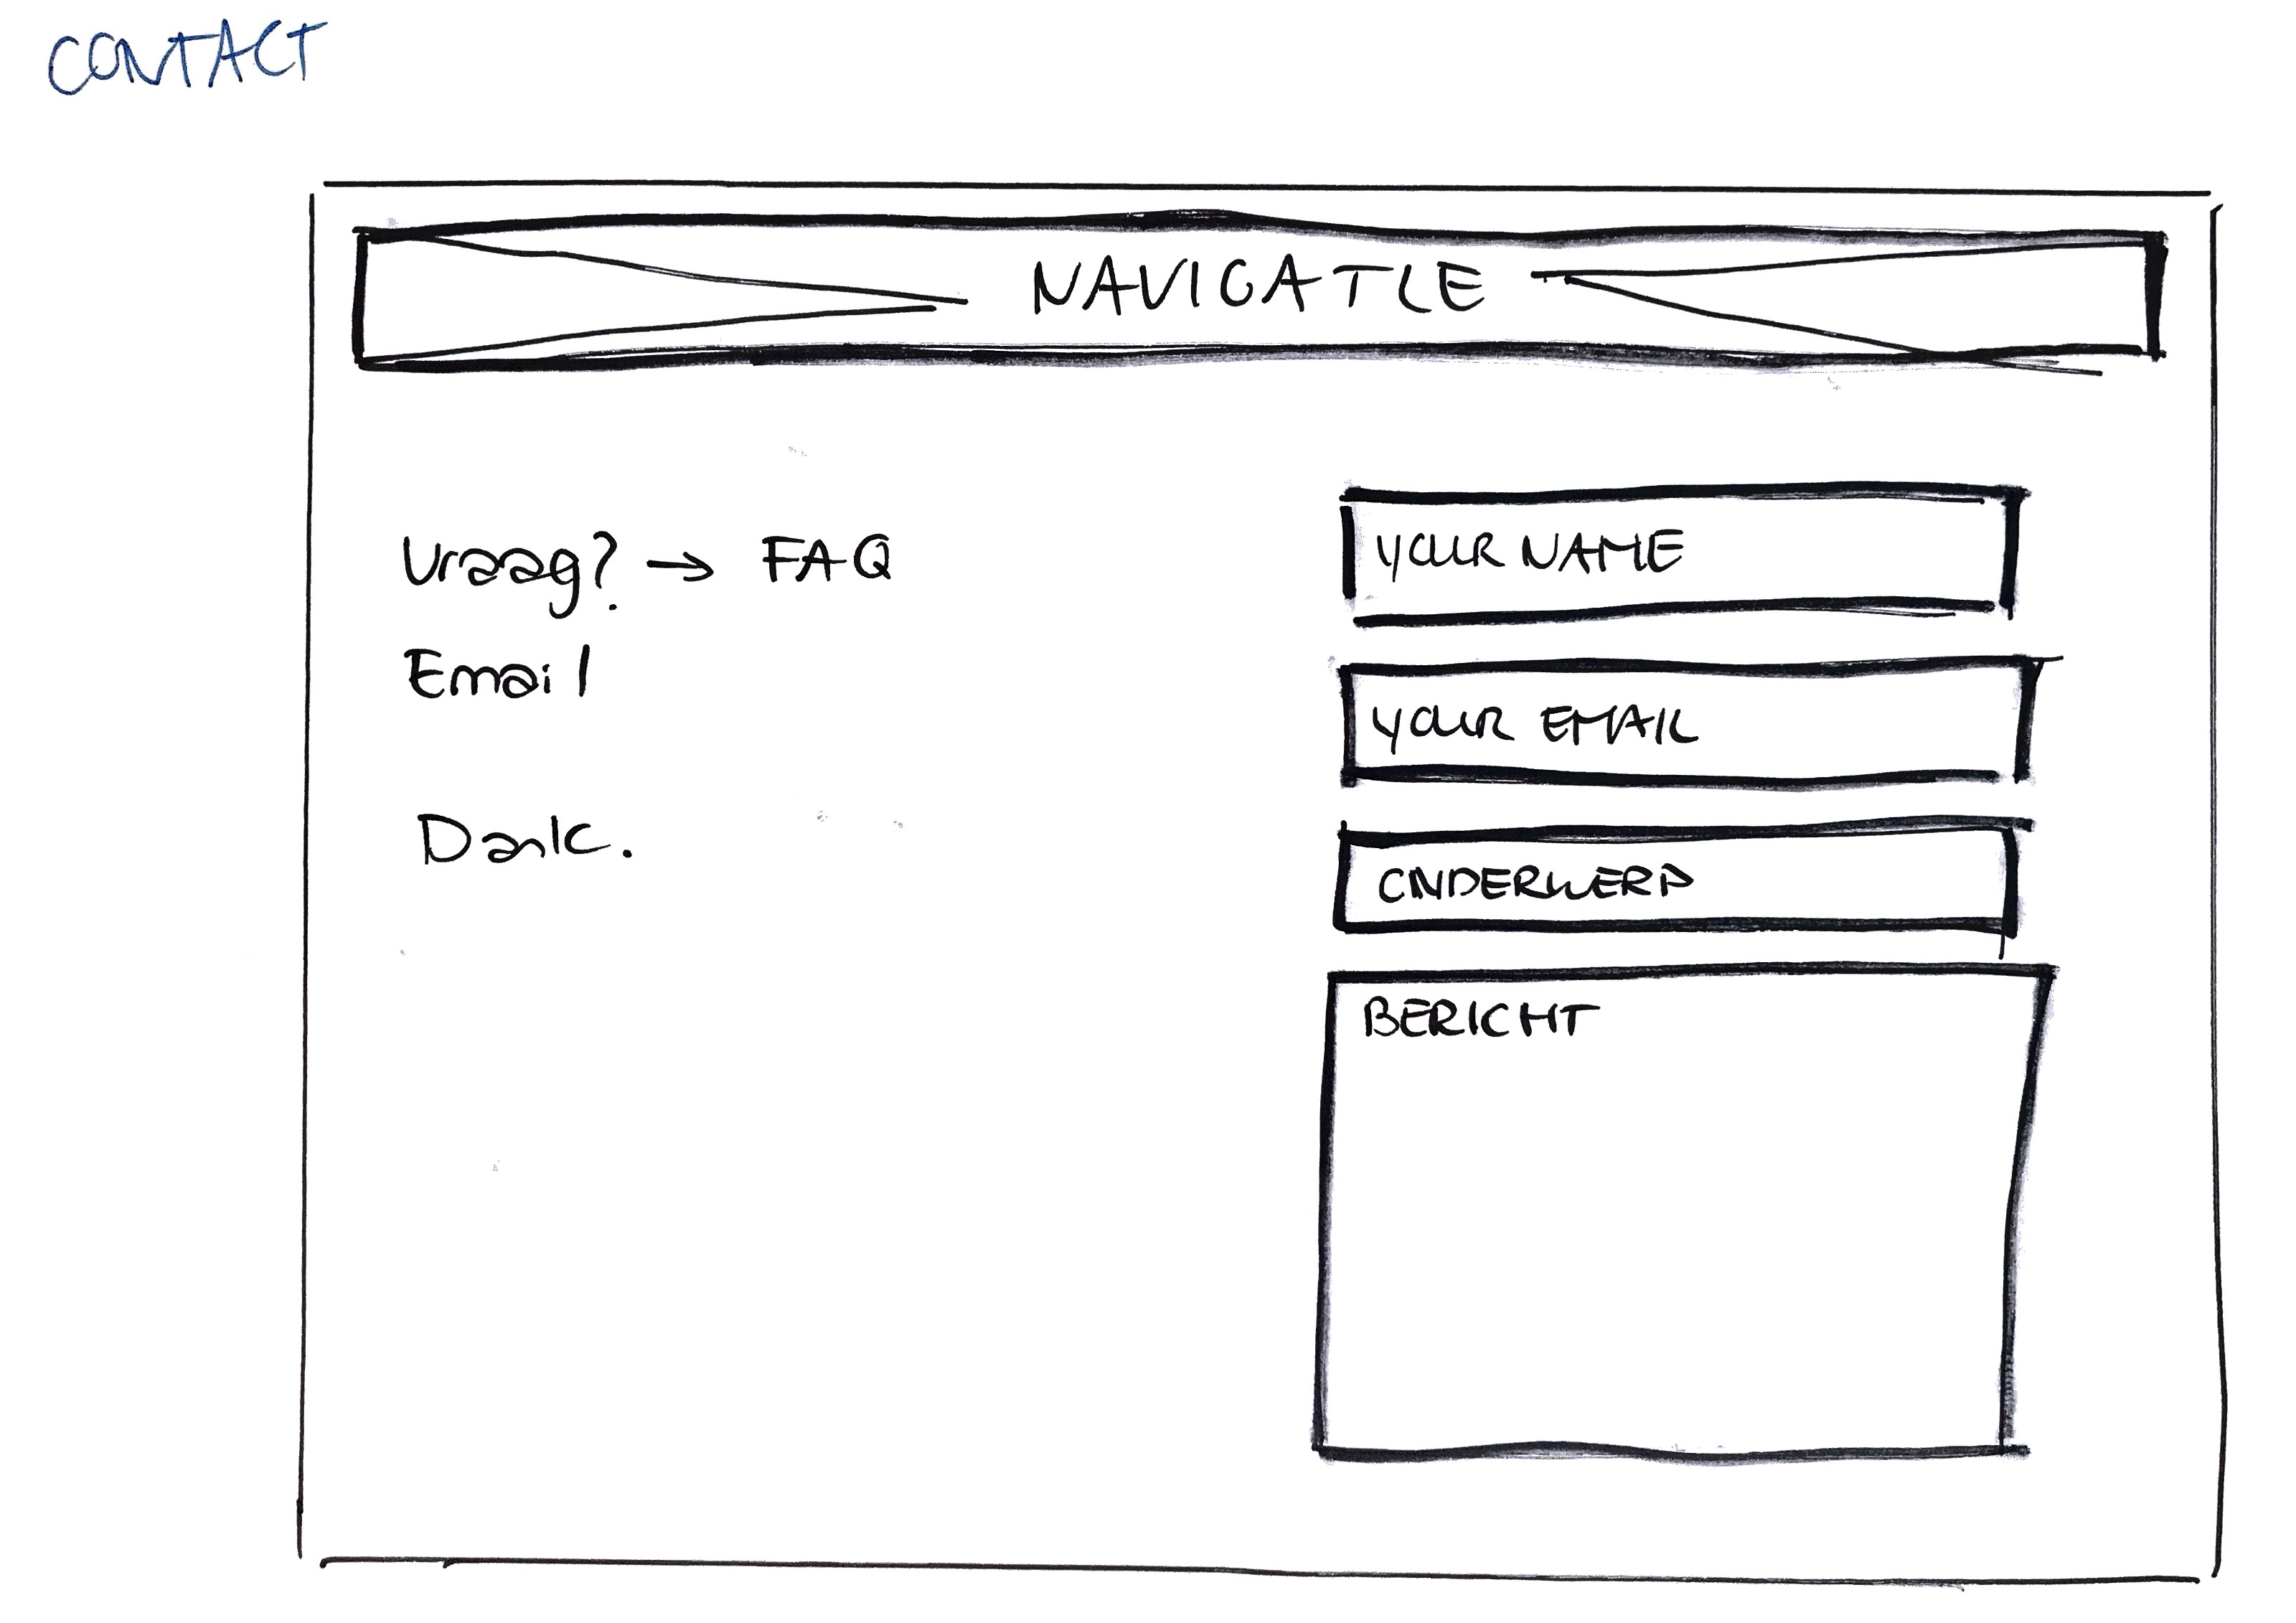 CONTACT
NAVIGATIE
Vraag? → FAQ
Email
Dank.
YOUR NAME
YOUR EMAIL
ONDERWERP
BERICHT